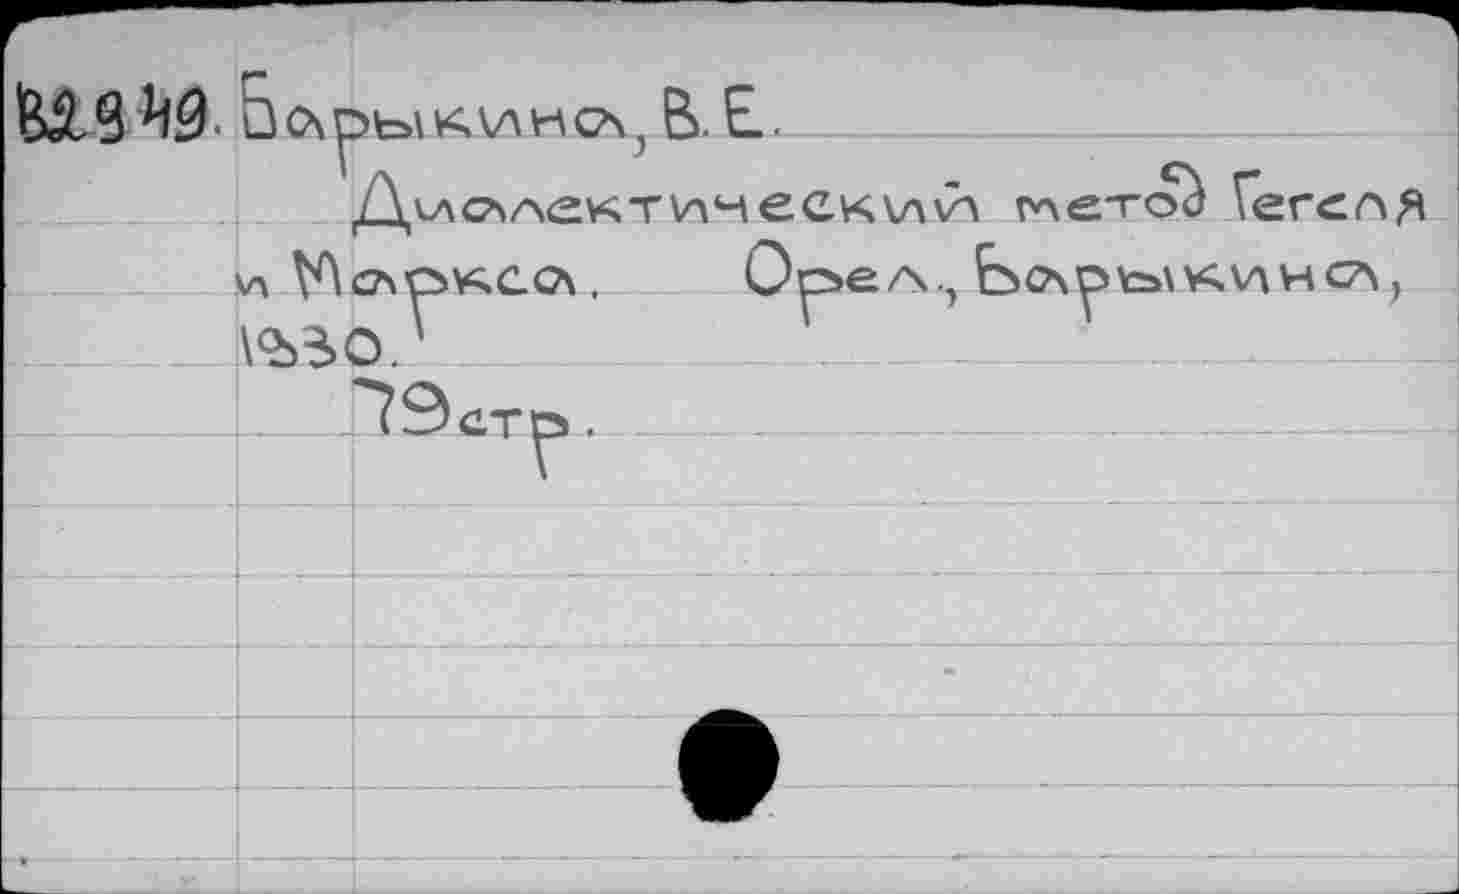 Барыкина, В. Е.
Диалектический метод Гегеля
и Маркса. Орел., Барыкина,
1930.
79 стр.